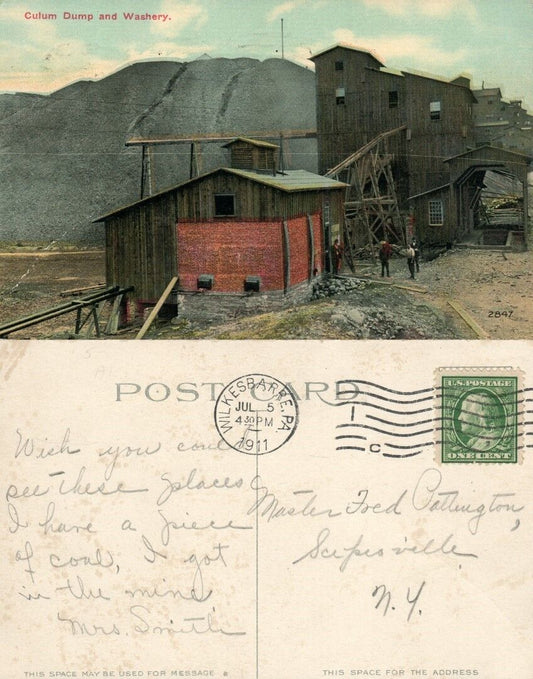 Culum Dump and Washery.
2847.
POST CARD
WILKESBARRE, PA
JUL 5
430 PM
1911
1
C
U.S. POSTAGE
ONE CENT
Wish you could
see these places
I have a piece
of coal, I got
in the mine
Mrs. Smith
Master Fred Pottington,
Scipioville
N.Y.
THIS SPACE MAY BE USED FOR MESSAGE
THIS SPACE FOR THE ADDRESS